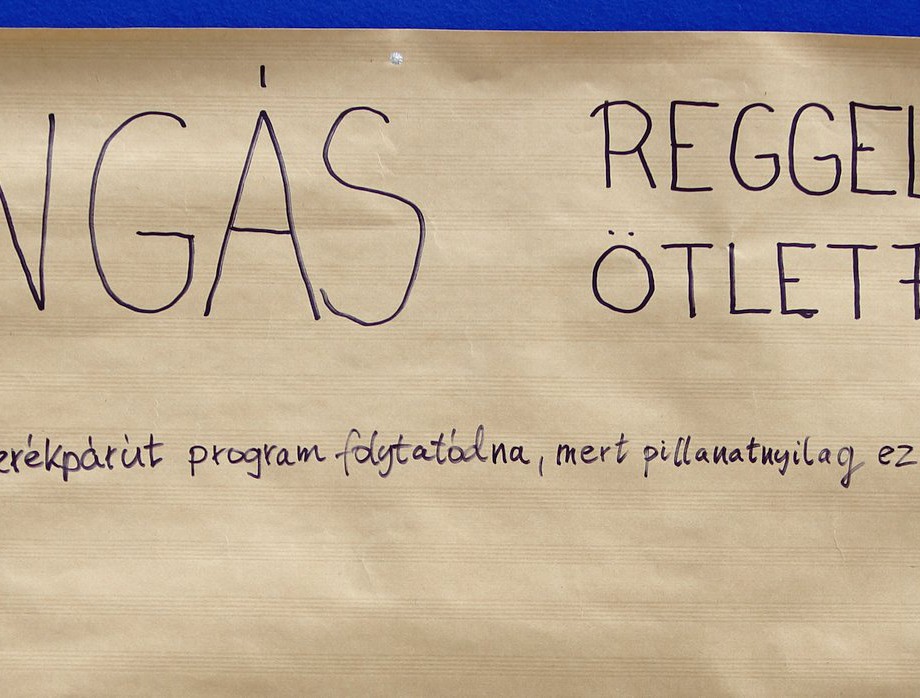 NGÁS
REGGEL
ÖTLETT
erékpárút program folytatódna, mert pillanatnyilag ez